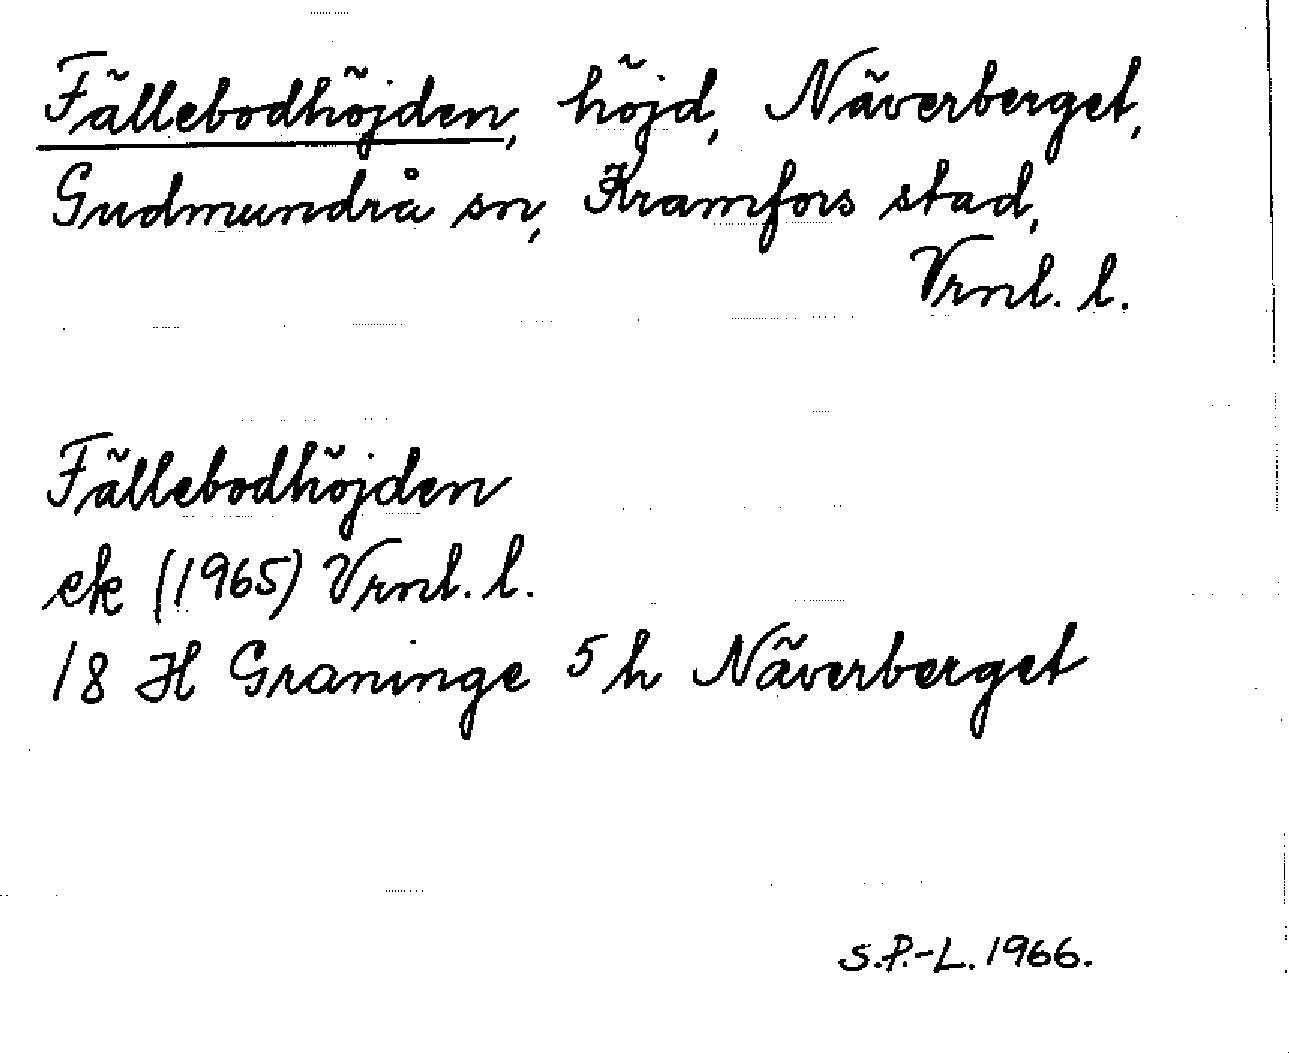 Fällebodhöjden, höjd, Näverberget,
Gudmundrå sn, Kramfors stad,
Vrnl. l.
Fällebodhöjden
ek (1965) Vrnl. l.
18 H Graninge 5 h Näverberget
S.P.-L. 1966.